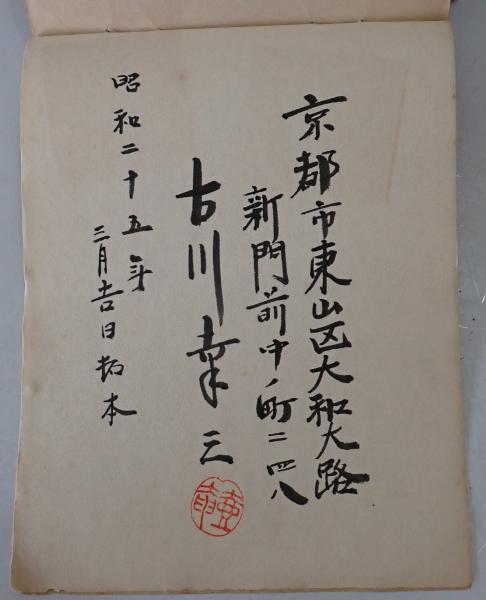 京都市東山区大和大路
新門前中ノ町二四八
古川幸三
昭和二十五年
三月吉日拓本